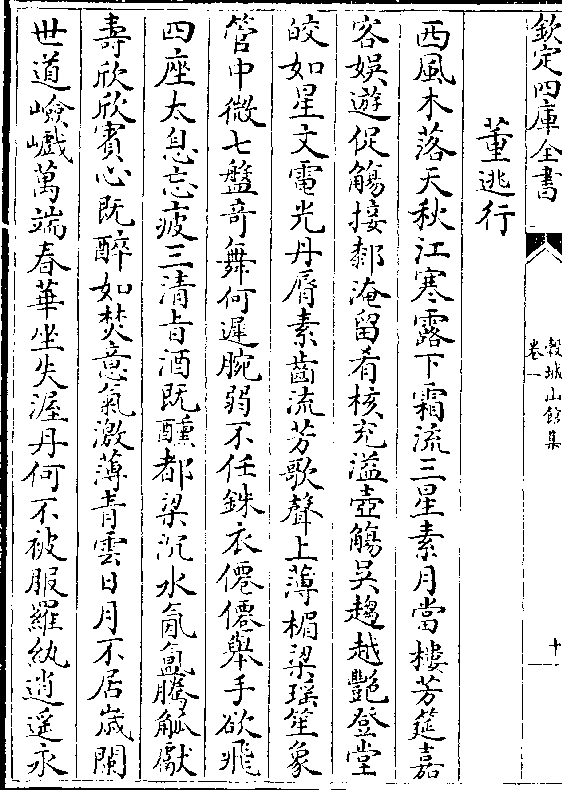 欽定四庫全書
穀城山館集
卷一
十
董逃行
西風木落天秋江寒露下霜流三星素月當樓芳筵嘉
客娛遊促觴接𨞬淹留肴核充溢壺觴吳趨越艷登堂
皎如星文電光丹脣素齒流芳歌聲上薄楣梁瑶笙象
管中微七盤奇舞何遲腕弱不任銖衣僊僊舉手欲飛
四座太息忘疲三清旨酒既醺都梁沉水氤氲騰觚獻
壽欣欣賓心既醉如焚意氣激薄青雲日月不居歲闌
世道嶮巇萬端春華坐失渥丹何不被服羅紈逍遥永